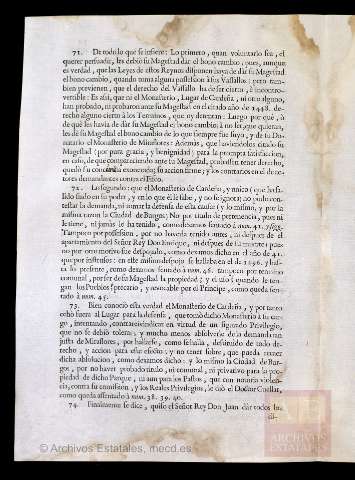 71. De todo lo que se infiere: Lo primero, quan voluntario sea, el
querer persuadir, les debiò su Magestad dàr el bono cambio; pues, aunque
es verdad, que las Leyes de estos Reynos disponen haya de dàr su Magestad
el bono cambio, quando toma alguna possession à sus Vassallos; pero tam-
bien previenen, que el derecho del Vassallo ha de ser cierto, è incontro-
vertible: Es assi, que ni el Monasterio, Lugar de Cardeña, ni otro alguno,
han probado, ni probaron ante su Magestad en el citado año de 1448. de-
recho alguno cierto à los Terminos, que oy detentan: Luego por què, ò
de què les havia de dàr su Magestad el bono cambio à no ser, que quieran,
les dè su Magestad el bono cambio de lo que siempre fue suyo, y de su Do-
natario el Monasterio de Miraflores: Ademàs, que haviendolos citado su
Magestad (por pura gracia, y benignidad) para la prompta satisfaccion,
en caso, de que compareciendo ante su Magestad, probassen tener derecho,
quedò su
mandas contra el Fisco.
72. Lo segundo: que el Monasterio de Cardeña, y unico (que ha sa-
lido fiado en su poder, y en lo que èl se sabe, y no se ignora) no pudo con-
testar la demanda, ni tomar la defensa de esta causa (y lo mismo, y por la
misma razon la Ciudad de Burgos) No por titulo de pertenencia, pues ni
le tiene, ni jamàs le ha tenido, como dexamos sentado à num. 41.
Tampoco por possession, por no haverla tenido antes, ni despues de el
apartamiento del Señor Rey Don Enrique, ni despues de su muerte; pues
no por otro motivo fue despojado, como dexamos dicho en el año de 41.
que por instruso: en este despojo se hallaba en el de 1596. y has-
ta lo presente, como dexamos sentado à num. 46. tampoco por termino
comunal, por ser de su Magestad la propiedad; y el uso (quando le ten-
gan los Pueblos) precario, y revocable por el Principe, como queda sen-
tado à num. 45.
73. Bien conociò esta verdad el Monasterio de Cardeña, y por tanto
echò fuera al Lugar para la defensa, que tomò dicho Monasterio à su car-
go, intentando, contraviniendo en virtud de un figurado Privilegio,
que no se debiò tolerar, y mucho menos absolverle de la demanda tan
justa de Miraflores, por hallarse, como se halla, destituido de todo de-
recho, y accion para este efecto; y no tener sobre, que pueda recaer
dicha absolucion, como dexamos dicho: y lo mismo la Ciudad de Bur-
gos, por no haver probado titulo, ni comunal, ni privativo para la pro-
piedad de dicho Parque, ni aun para los Pastos, que con notoria violen-
cia, contra su comission, y los Reales Privilegios, le diò el Doctor Cuellar,
como queda assentado à num. 38. 39. 40.
74. Finalmente se dice, quiso el Señor Rey Don Juan dàr todos los
© Archivos Estatales, mecd.es
ARCHIVOS
ESTATALES